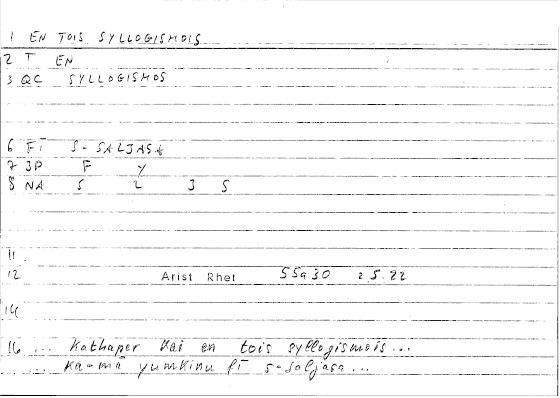 1 EN TOIS SYLLOGISMOIS
2 T EN
3 QC SYLLOGISMOS
6 FĪ S-SALJASA
7 3P F Y
8 NA S 2 3 S
11
12 Arist Rhet 55a30 25.22
14
16 ... Kathaper kai en tois syllogismois...
... ka-mā yumkinu fī s-saljasa...